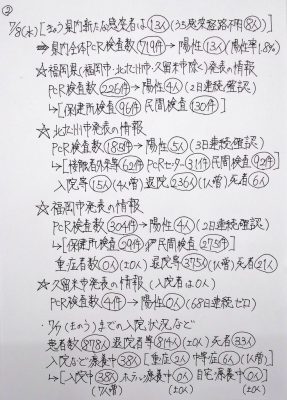 ②
7/8(水)[きょう県内新たな感染者は13人(うち感染経路不明8人)]
⇒県内全体PCR検査数719件→陽性13人(陽性率1.8%)
☆福岡県(福岡市・北九州市・久留米市除く)発表の情報
PCR検査数226件→陽性4人(2日連続確認)
↳[保健所検査96件 民間検査130件]
☆北九州市発表の情報
PCR検査数185件→陽性5人(3日連続確認)
↳[接触者外来等62件 PCRセンター31件 民間検査92件]
入院等15人(4人増) 退院236人(1人増) 死者6人
☆福岡市発表の情報
PCR検査数304件→陽性4人(2日連続確認)
↳[保健所検査29件 民間検査275件]
重症者数0人(±0人) 退院等375人(1人増) 死者21人
☆久留米市発表の情報(入院者は0人)
PCR検査数4件→陽性0人(68日連続ゼロ)
・7/7(きのう)までの入院状況など
患者数878人 退院者等814件(±0人) 死者33人
入院など療養中38人[重症2人 中等症6人(1人増)]
↳[入院中38人 ホテル療養中0人 自宅療養中0人]
(7人増) (±0人) (±0人)